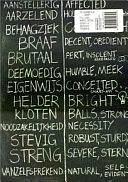 AANSTELLERIG AFFECTED
AARZELEND
BEHAAGZIEK
BRAAF DECENT, OBEDIENT
BRUTAAL PERT, INSOLENT
DEEMOEDIG HUMBLE, MEEK
EIGENWIJS CONCEITED,
HELDER BRIGHT
KLOTEN BALLS, STRONG
NOODZAKELIJKHEID NECESSITY
STEVIG ROBUST, STURDY
STRENG SEVERE, STERN
VANZELFSPREKEND NATURAL, SELF-EVIDENT